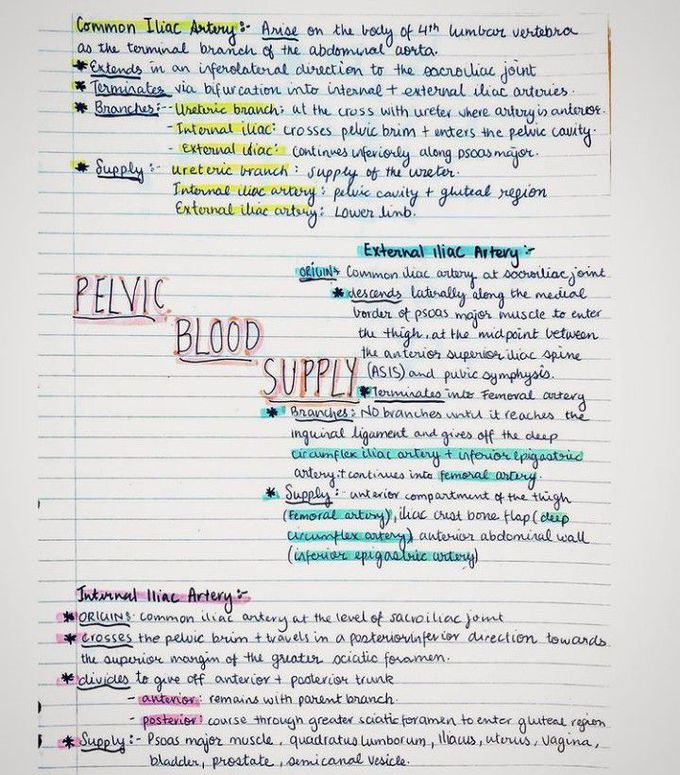 Common Iliac Artery:- Arise on the body of 4th lumbar vertebra
as the terminal branch of the abdominal aorta.
* Extends in an inferolateral direction to the sacroiliac joint
* Terminates via bifurcation into internal + external iliac arteries.
* Branches:-- Ureteric branch: at the cross with ureter where artery is anterior.
- Internal iliac: crosses pelvic brim + enters the pelvic cavity.
- External iliac: continues inferiorly along psoas major.
* Supply:- ureteric branch: supply of the ureter.
Internal iliac artery: pelvic cavity + gluteal region
External iliac artery: Lower limb.
PELVIC
BLOOD
SUPPLY
External iliac Artery:-
ORIGINS Common iliac artery at sacroiliac joint
* descends laterally along the medial
border of psoas major muscle to enter
the thigh, at the midpoint between
the anterior superior iliac spine
(ASIS) and pubic symphysis.
* Terminates into Femoral artery
* Branches: NO branches until it reaches the
inguinal ligament and gives off the deep
circumflex iliac artery + inferior epigastric
artery + continues into femoral artery.
* Supply:- anterior compartment of the thigh
(Femoral artery), iliac crest bone flap (deep
circumflex artery) anterior abdominal wall
(inferior epigastric artery)
Internal Iliac Artery:-
* ORIGINS: common iliac artery at the level of sacroiliac joint
* crosses the pelvic brim + travels in a posteriorinferior direction towards
the superior margin of the greater sciatic foramen.
* divides to give off anterior + posterior trunk
- anterior: remains with parent branch.
- posterior: course through greater sciatic foramen to enter gluteal region
* Supply:- Psoas major muscle, quadratus lumborum, iliacus, uterus, vagina,
bladder, prostate, semicanal vesicle.